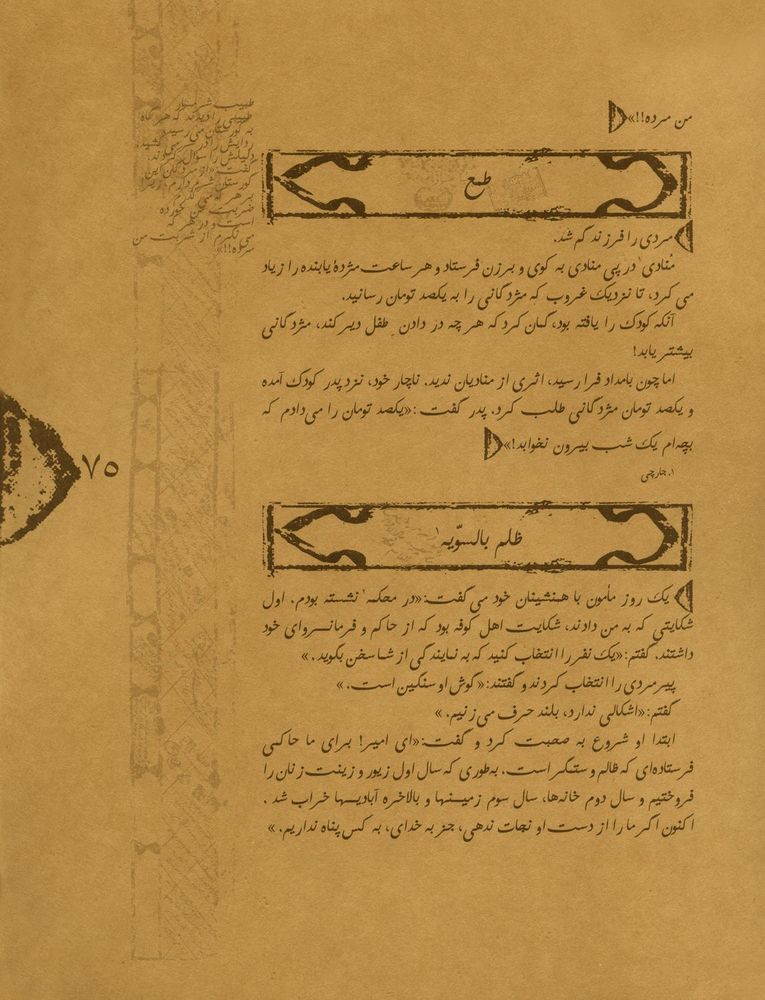 من مرده!!»
طمع
مردی را فرزند گم شد.
مُنادی¹ در پی منادی به کوی و برزن فرستاد و هر ساعت مژدهٔ یابنده را زیاد
می کرد، تا نزدیک غروب که مژدگانی را به یکصد تومان رسانید.
آنکه کودک را یافته بود، گمان کرد که هر چه در دادن طفل دیر کند، مژدگانی
بیشتر یابد!
اما چون بامداد فرا رسید، اثری از منادیان ندید. ناچار خود، نزد پدر کودک آمده
و یکصد تومان مژدگانی طلب کرد. پدر گفت :«یکصد تومان را می‌دادم که
بچه‌ام یک شب بیرون نخوابد!»
۱. جارچی
ظلم بالسوّیه¹
یک روز مأمون با همنشینان خود می گفت:«در محکمه¹ نشسته بودم. اول
شکایتی که به من دادند، شکایت اهل کوفه بود که از حاکم و فرمانروای خود
داشتند. گفتم:«یک نفر را انتخاب کنید که به نمایندگی از شما سخن بگوید.»
پیرمردی را انتخاب کردند و گفتند:«گوش او سنگین است.»
گفتم:«اشکالی ندارد، بلند حرف می زنیم.»
ابتدا او شروع به صحبت کرد و گفت:«ای امیر! برای ما حاکمی
فرستاده‌ای که ظالم و ستمگر است. به‌طوری که سال اول زیور و زینت زنان را
فروختیم و سال دوم خانه‌ها، سال سوم زمینها و بالاخره آبادیها خراب شد.
اکنون اگر ما را از دست او نجات ندهی، جز به خدای، به کس پناه نداریم.»
۷۵
طبیب شرمسار
طبیبی را دیدند که هر گاه
به گورستان می رسید
ردایش را در سر می کشید.
دلیلش را سؤال کردند.
گفت:«از مردگان این
گورستان شرم دارم. زیرا
بر هر که می گذرم
ضربت من خورده
است و در هر که
می نگرم از شربت من
مرده!!»